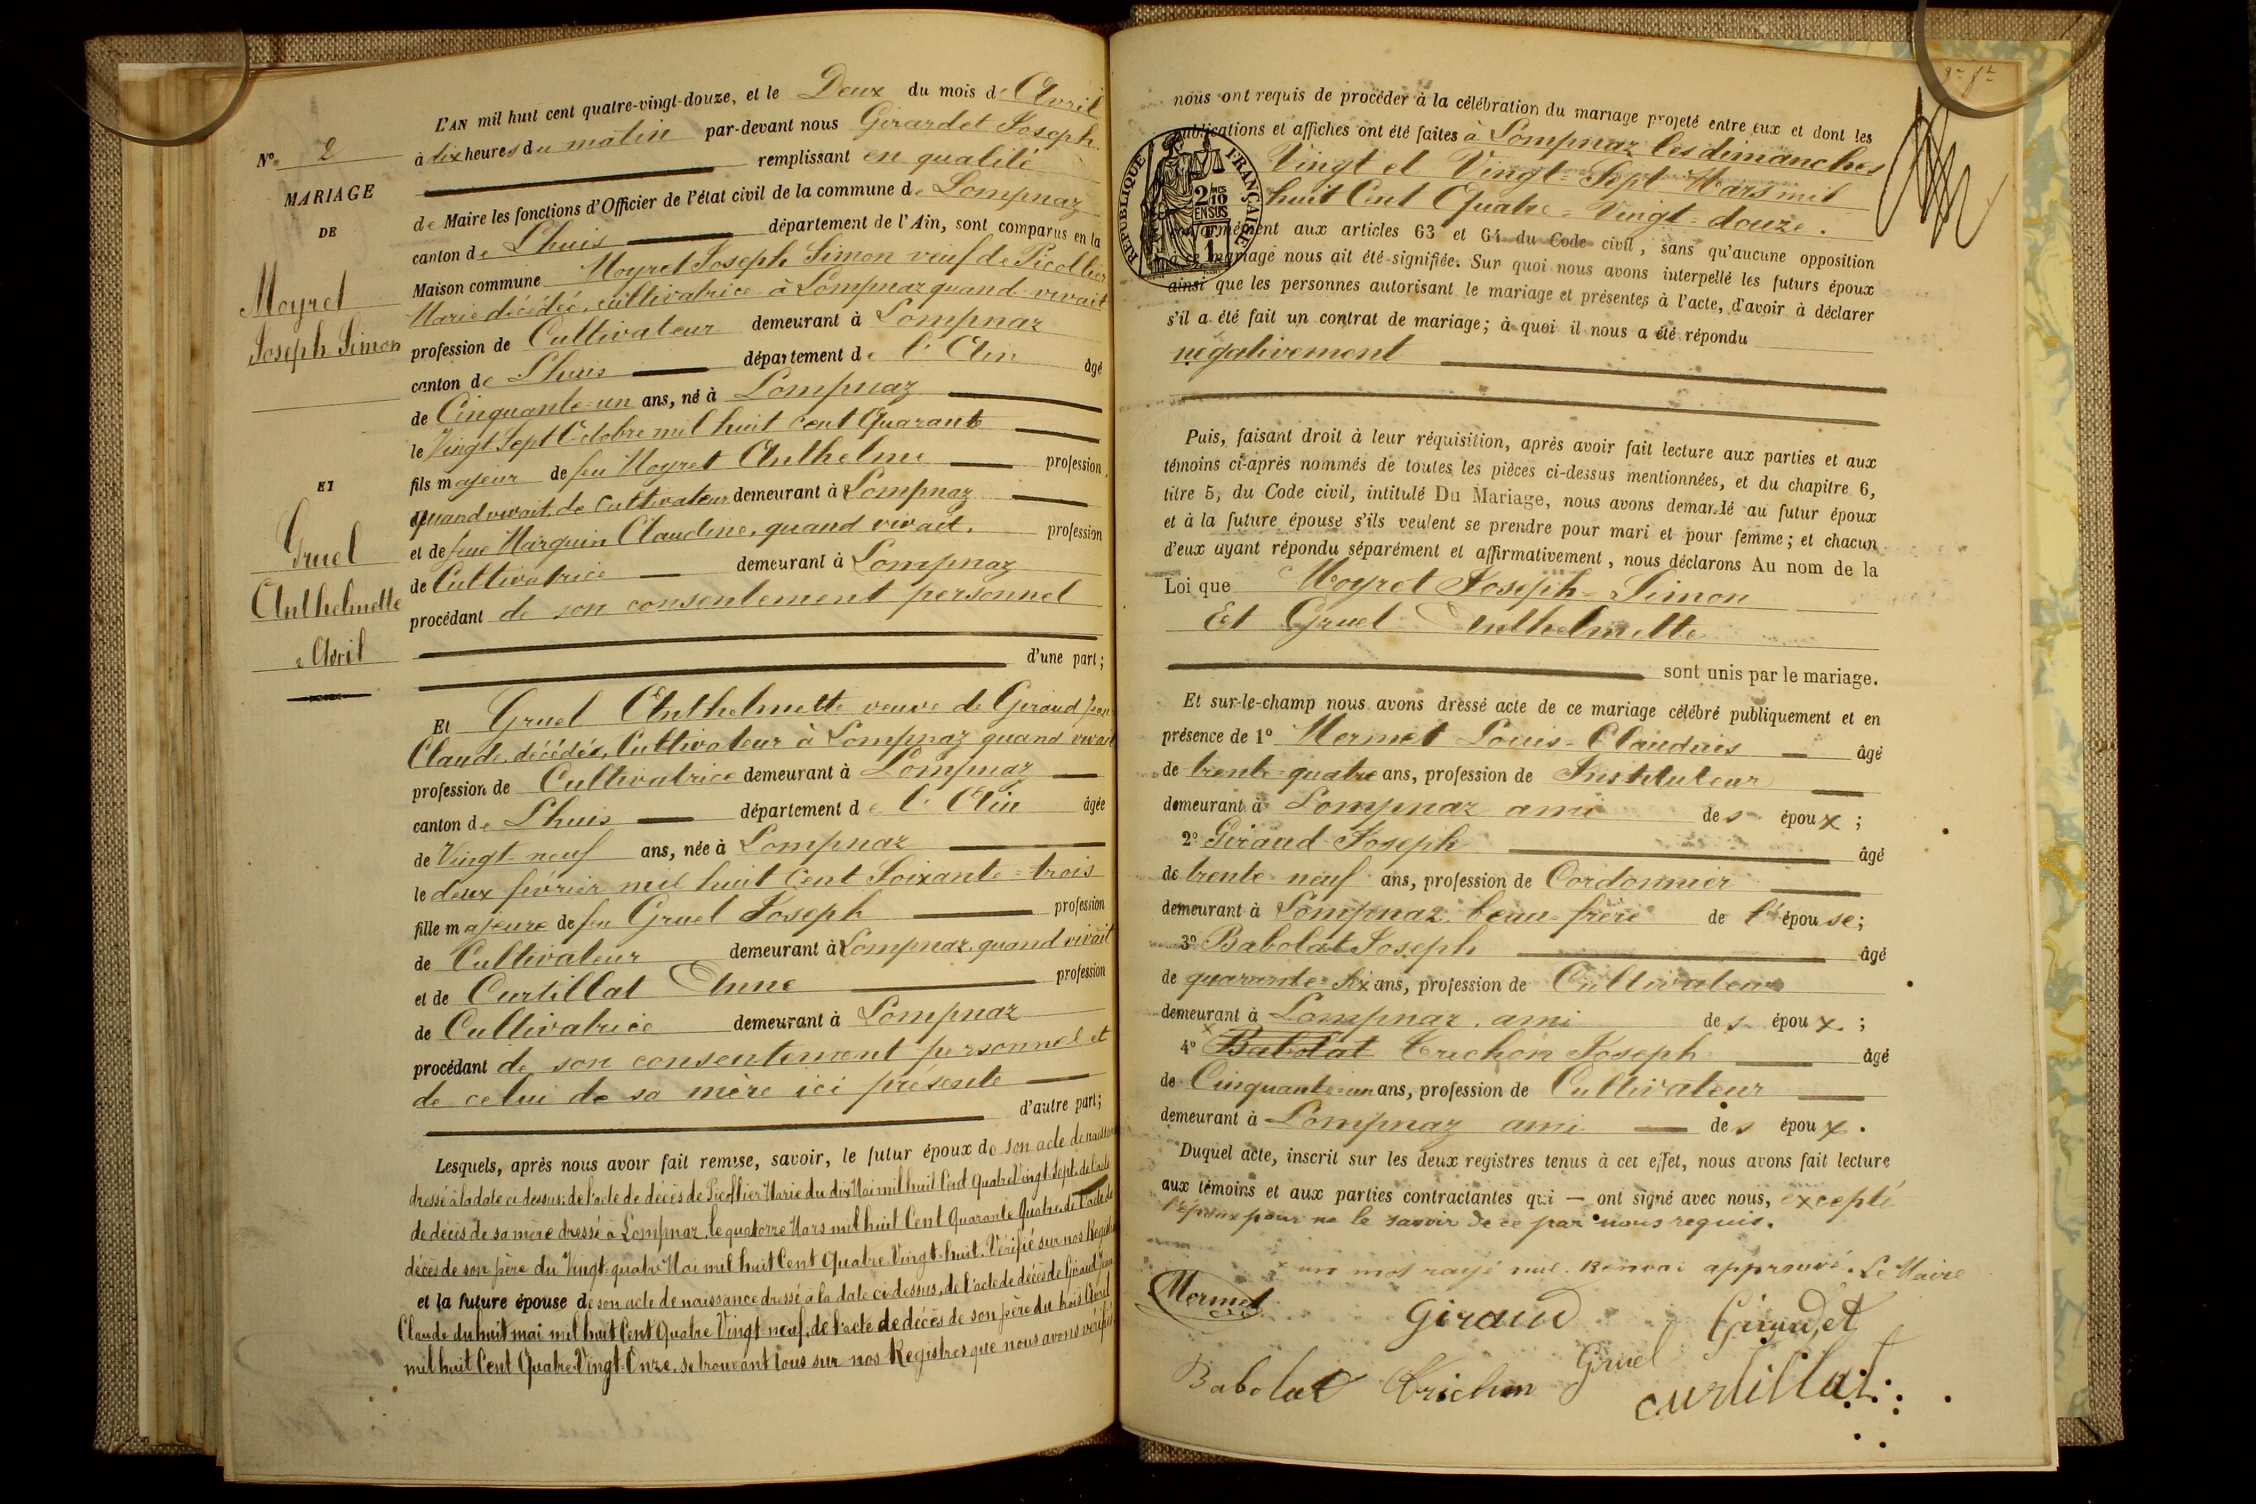 N° 2
MARIAGE
DE
Moyret
Joseph Simon
ET
Gruel
Anthelmette
2 Avril
L'AN mil huit cent quatre-vingt-douze, et le Deux du mois d'Avril
à dix heures du matin par-devant nous Girardet Joseph
remplissant en qualité
de Maire les fonctions d'Officier de l'état civil de la commune de Lompnaz
canton de Lhuis département de l'Ain, sont comparus en la
Maison commune Moyret Joseph Simon veuf de Picollier
Marie décédée, cultivatrice à Lompnaz quand vivait
profession de Cultivateur demeurant à Lompnaz
canton de Lhuis département de l'Ain âgé
de Cinquante-un ans, né à Lompnaz
le Vingt Sept Octobre mil huit cent Quarante
fils majeur de feu Moyret Anthelme profession
quand vivait de Cultivateur demeurant à Lompnaz
et de feue Marquin Claudine, quand vivait, profession
de Cultivatrice demeurant à Lompnaz
procédant de son consentement personnel
d'une part;
Et Gruel Anthelmette veuve de Giraud Jean
Claude, décédé, Cultivateur à Lompnaz quand vivait
profession de Cultivatrice demeurant à Lompnaz
canton de Lhuis département de l'Ain âgée
de Vingt-neuf ans, née à Lompnaz
le deux février mil huit Cent Soixante=trois
fille majeure de feu Gruel Joseph profession
de Cultivateur demeurant à Lompnaz, quand vivait
et de Curtillat Anne profession
de Cultivatrice demeurant à Lompnaz
procédant de son consentement personnel et
de celui de sa mère ici présente
d'autre part;
Lesquels, après nous avoir fait remise, savoir, le futur époux de son acte de naissance
dressé à la date ci-dessus; de l'acte de décès de Picollier Marie du dix Mai mil huit Cent Quatre Vingt Sept, de l'acte
de décès de sa mère dressé à Lompnaz, le quatorze Mars mil huit Cent Quarante Quatre, de l'acte de
décès de son père du Vingt-quatre Mai mil huit Cent Quatre-Vingt-huit. Vérifié sur nos Registres
et la future épouse de son acte de naissance dressé à la date ci-dessus, de l'acte de décès de Giraud Jean
Claude du huit mai mil huit Cent Quatre Vingt-neuf, de l'acte de décès de son père du trois Avril
mil huit Cent Quatre-Vingt-Onze, se trouvant tous sur nos Registres que nous avons vérifiés
nous ont requis de procéder à la célébration du mariage projeté entre eux et dont les
publications et affiches ont été faites à Lompnaz les dimanches
Vingt et Vingt-Sept Mars mil
huit Cent Quatre-Vingt-douze.
conformément aux articles 63 et 64 du Code civil, sans qu'aucune opposition
à ce mariage nous ait été signifiée. Sur quoi nous avons interpellé les futurs époux
ainsi que les personnes autorisant le mariage et présentes à l'acte, d'avoir à déclarer
s'il a été fait un contrat de mariage; à quoi il nous a été répondu
négativement
RÉPUBLIQUE FRANÇAISE
2/10 EN SUS
1 F
Puis, faisant droit à leur réquisition, après avoir fait lecture aux parties et aux
témoins ci-après nommés de toutes les pièces ci-dessus mentionnées, et du chapitre 6,
titre 5, du Code civil, intitulé Du Mariage, nous avons demandé au futur époux
et à la future épouse s'ils veulent se prendre pour mari et pour femme; et chacun
d'eux ayant répondu séparément et affirmativement, nous déclarons Au nom de la
Loi que Moyret Joseph-Simon
Et Gruel Anthelmette
sont unis par le mariage.
Et sur-le-champ nous avons dressé acte de ce mariage célébré publiquement et en
présence de 1° Mermet Louis-Claudius âgé
de trente-quatre ans, profession de Instituteur
demeurant à Lompnaz ami des époux;
2° Giraud Joseph âgé
de trente-neuf ans, profession de Cordonnier
demeurant à Lompnaz, beau-frère de l'épouse;
3° Babolat Joseph âgé
de quarante-six ans, profession de Cultivateur
demeurant à Lompnaz, ami des époux.;
4° x Babolat Trichon Joseph âgé
de Cinquante-un ans, profession de Cultivateur
demeurant à Lompnaz ami des époux.
Duquel acte, inscrit sur les deux registres tenus à cet effet, nous avons fait lecture
aux témoins et aux parties contractantes qui — ont signé avec nous, excepté
l'époux pour ne le savoir de ce par nous requis.
x un mot rayé nul. Renvoi approuvé. Le Maire
Mermet
Giraud
Girardet
Babolat
Trichon
Gruel
Curtillat